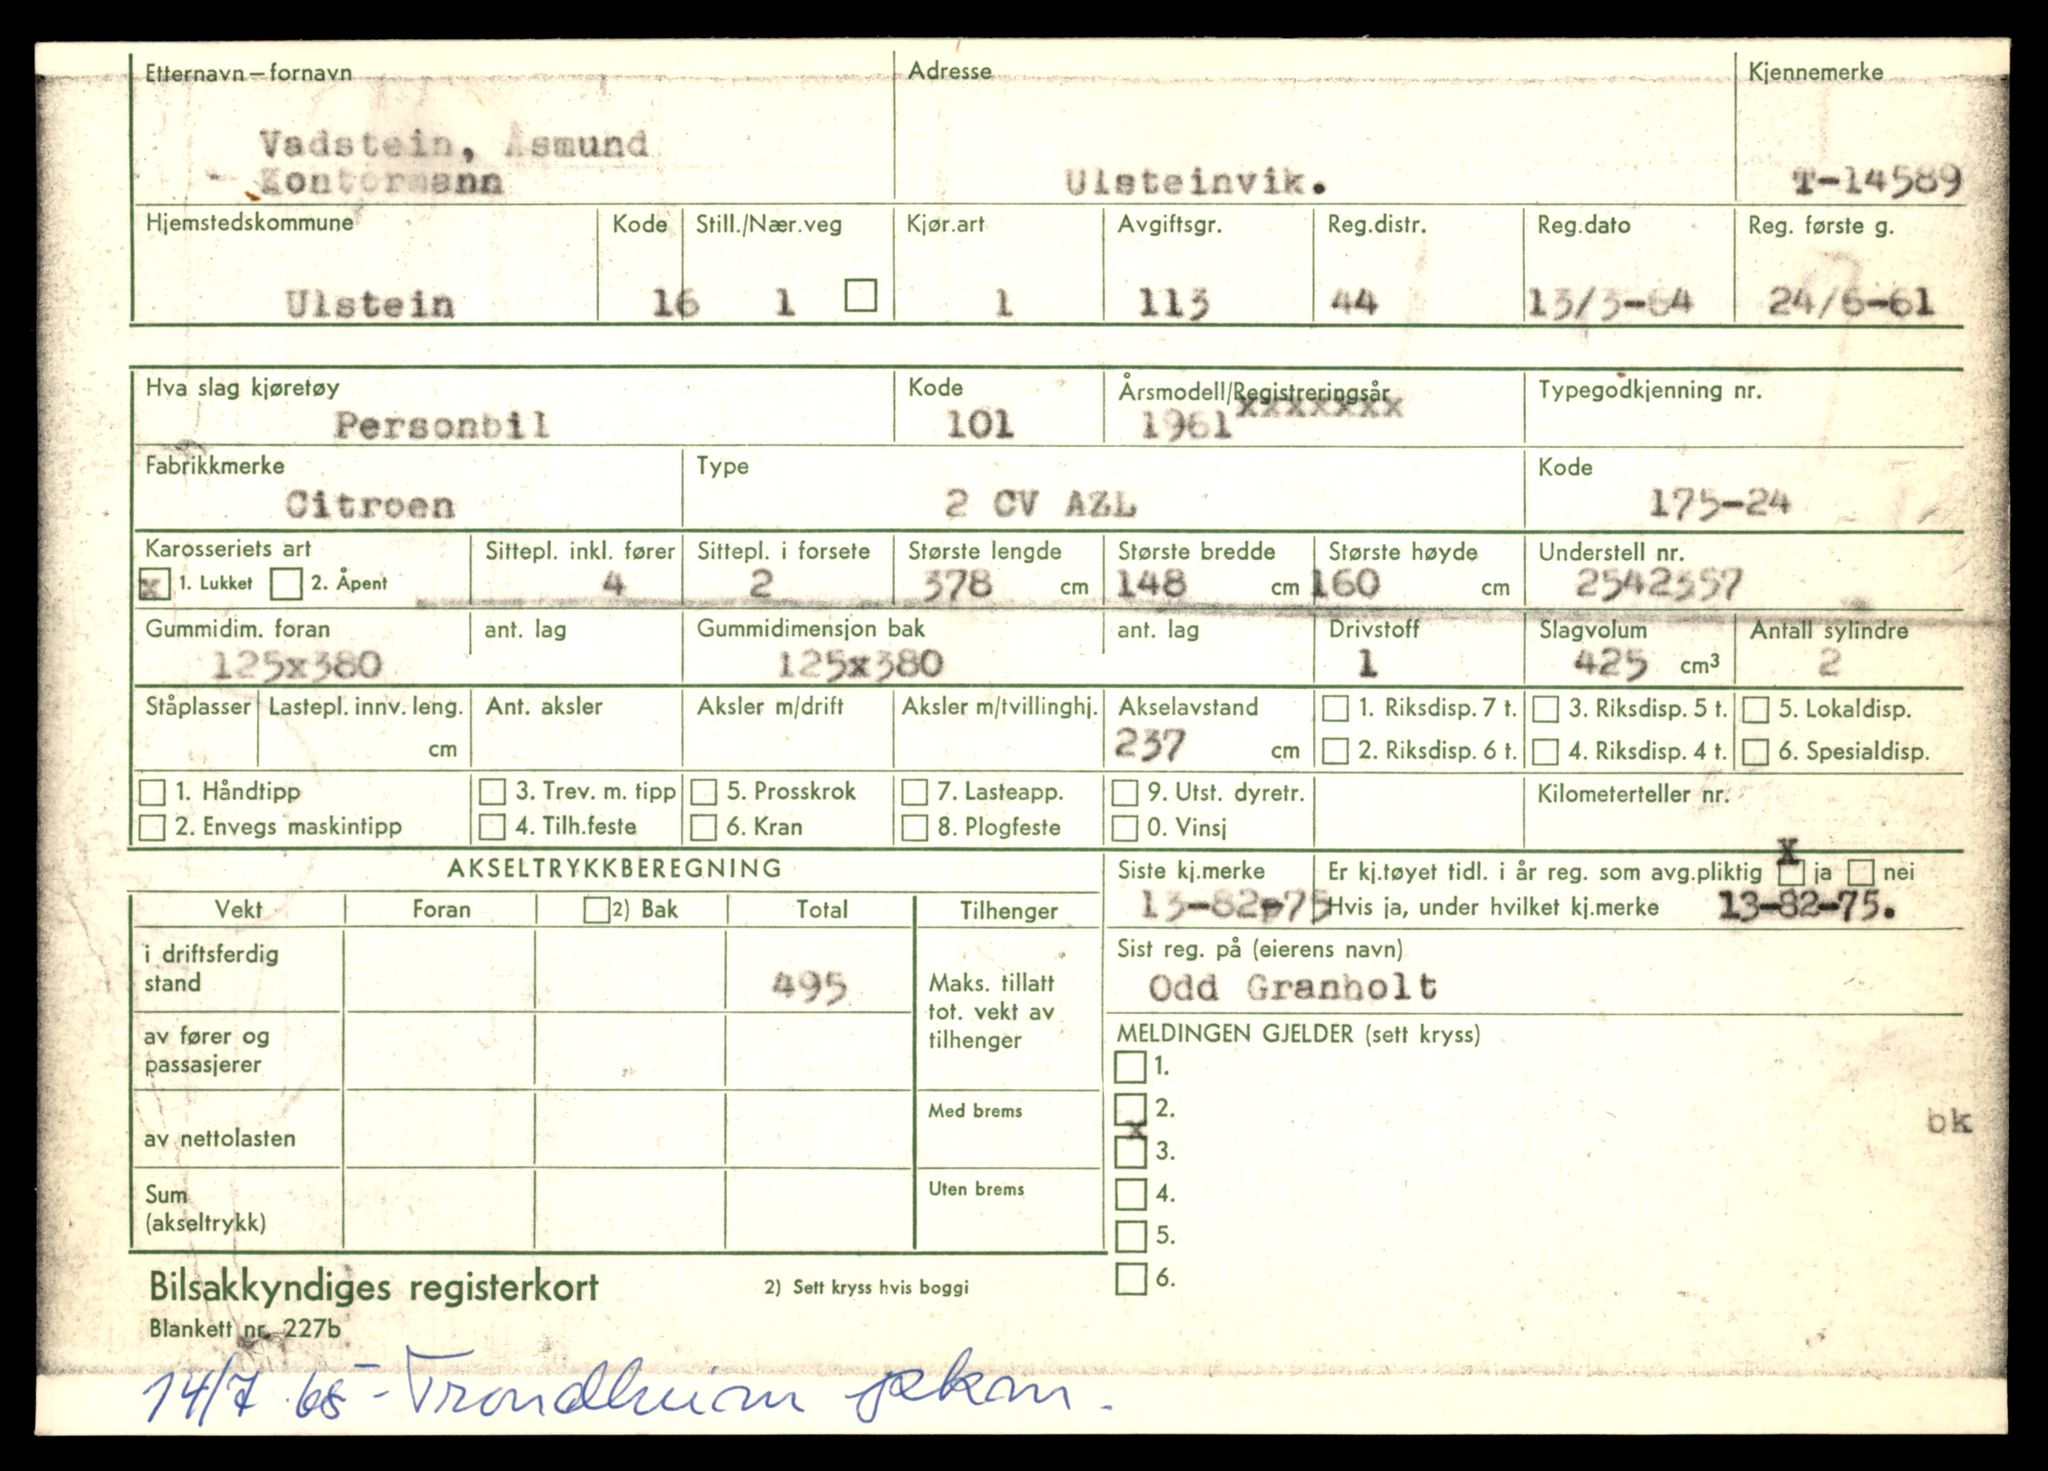 Etternavn–fornavn Adresse Kjennemerke
Vadstein, Åsmund
Kontormann Ulsteinvik. T-14589
Hjemstedskommune Kode Still./Nær.veg Kjør.art Avgiftsgr. Reg.distr. Reg.dato Reg. første g.
Ulstein 16 1 1 113 44 13/3-64 24/6-61
Hva slag kjøretøy Kode Årsmodell/Registreringsår Typegodkjenning nr.
Personbil 101 1961 xxxxxxx
Fabrikkmerke Type Kode
Citroen 2 CV AZL 175-24
Karosseriets art Sittepl. inkl. fører Sittepl. i forsete Største lengde Største bredde Største høyde Understell nr.
x 1. Lukket 2. Åpent 4 2 378 cm 148 cm 160 cm 2542357
Gummidim. foran ant. lag Gummidimensjon bak ant. lag Drivstoff Slagvolum Antall sylindre
125x380 125x380 1 425 cm³ 2
Ståplasser Lastepl. innv. leng. Ant. aksler Aksler m/drift Aksler m/tvillinghj. Akselavstand 1. Riksdisp. 7 t. 3. Riksdisp. 5 t. 5. Lokaldisp.
cm 237 cm 2. Riksdisp. 6 t. 4. Riksdisp. 4 t. 6. Spesialdisp.
1. Håndtipp 3. Trev. m. tipp 5. Prosskrok 7. Lasteapp. 9. Utst. dyretr. Kilometerteller nr.
2. Envegs maskintipp 4. Tilh.feste 6. Kran 8. Plogfeste 0. Vinsj
AKSELTRYKKBEREGNING Siste kj.merke Er kj.tøyet tidl. i år reg. som avg.pliktig X ja nei
Vekt Foran 2) Bak Total Tilhenger 13-82-75 Hvis ja, under hvilket kj.merke 13-82-75.
i driftsferdig
stand 495
Sist reg. på (eierens navn)
Odd Granholt
Maks. tillatt
tot. vekt av
tilhenger
MELDINGEN GJELDER (sett kryss)
av fører og
passasjerer
1.
Med brems 2.
av nettolasten x 3. bk
Sum
(akseltrykk)
Uten brems 4.
5.
6.
Bilsakkyndiges registerkort 2) Sett kryss hvis boggi
Blankett nr. 227b
14/7 65 - Trondheim